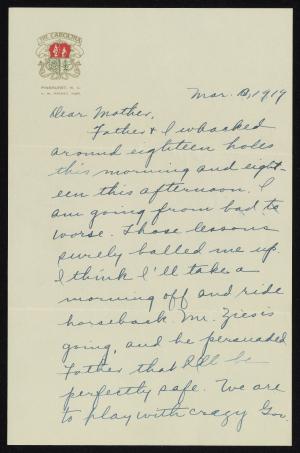 THE CAROLINA
PINEHURST, N. C.
Mar. 13, 1919
Dear Mother,
Father & I whacked
around eighteen holes
this morning and eight-
een this afternoon. I
am going from bad to
worse. Those lessons
surely balled me up.
I think I'll take a
morning off and ride
horseback. Mr.
going, and he persuaded
Father that I'll be
perfectly safe. We are
to play with crazy Gov.